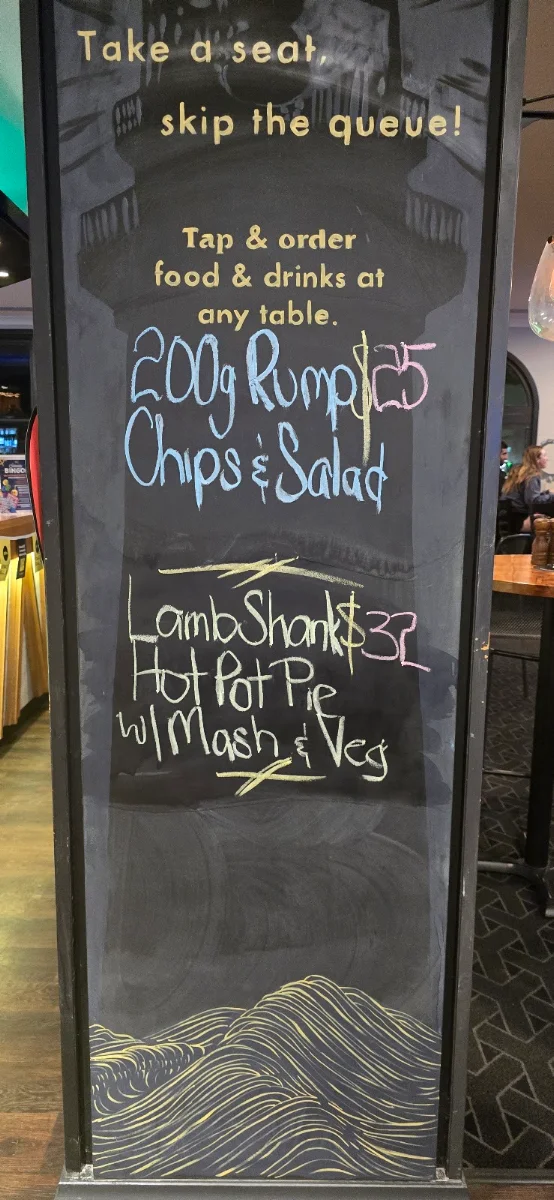 Take a seat,
skip the queue!
Tap & order
food & drinks at
any table.
200g Rump $25
Chips & Salad
Lamb Shank $32
Hot Pot Pie
w/ Mash & Veg
BINGO